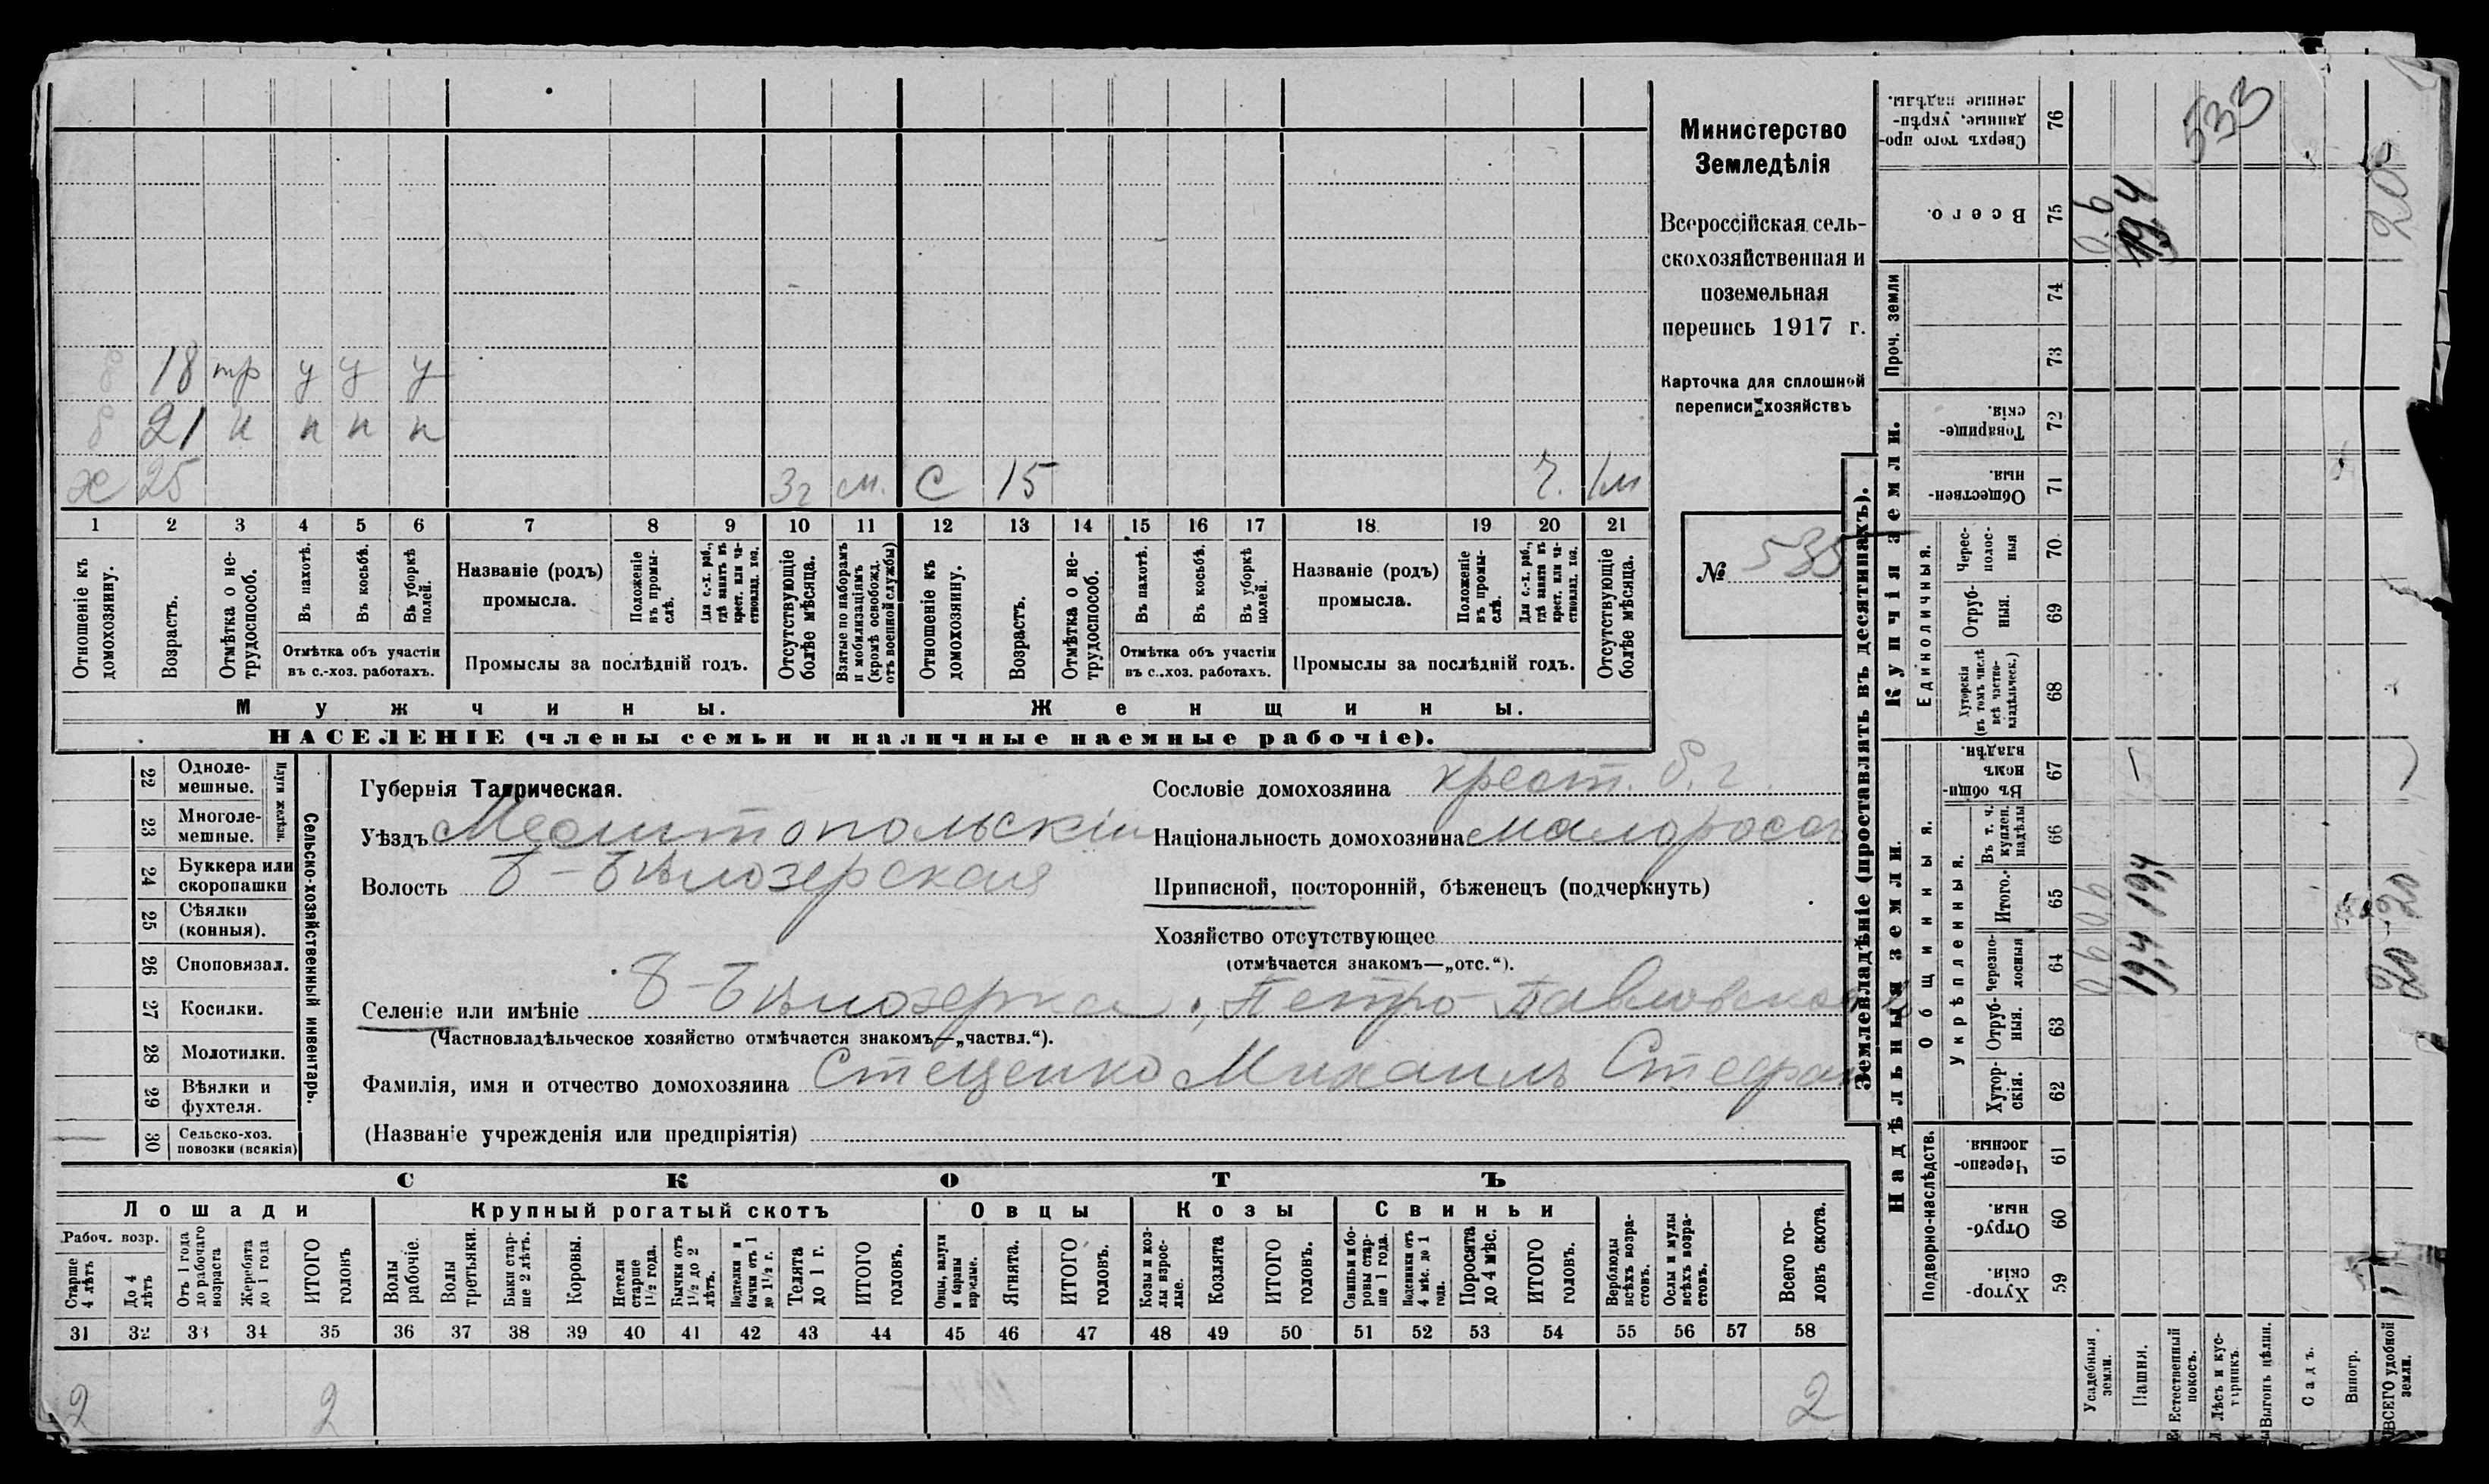 Министерство
Земледѣлія
Всероссійская сель-
скохозяйственная и
поземельная
перепись 1917 г.
Карточка для сплошной
переписи хозяйствъ
№ 535
533
б 18 тр у у у
б 21 н п п п
х 25 3г м. С 15 1м
1 2 3 4 5 6 7 8 9 10 11 12 13 14 15 16 17 18 19 20 21
Отношеніе къ домохозяину.
Возрастъ.
Отмѣтка о не-трудоспособ.
Въ пахотѣ.
Въ косьбѣ.
Въ уборкѣ полей.
Отмѣтка объ участіи
въ с.-хоз. работахъ.
Названіе (родъ)
промысла.
Положеніе въ промы-слѣ.
Для с.-х. раб., гдѣ занятъ въ крест. или ча-стновлад. хоз.
Промыслы за послѣдній годъ.
Отсутствующіе болѣе мѣсяца.
Взятые по наборамъ и мобилизаціямъ (кромѣ освобожд. отъ военной службы)
Отношеніе къ домохозяину.
Возрастъ.
Отмѣтка о не-трудоспособ.
Въ пахотѣ.
Въ косьбѣ.
Въ уборкѣ полей.
Отмѣтка объ участіи
въ с.-хоз. работахъ.
Названіе (родъ)
промысла.
Положеніе въ промы-слѣ.
Для с.-х. раб., гдѣ занята въ крест. или ча-стновлад. хоз.
Промыслы за послѣдній годъ.
Отсутствующіе болѣе мѣсяца.
Мужчины.
Женщины.
НАСЕЛЕНІЕ (члены семьи и наличные наемные рабочіе).
22 Одноле-мешные.
23 Многоле-мешные.
24 Буккера или скоропашки
25 Сѣялки (конныя).
26 Сноповязал.
27 Косилки.
28 Молотилки.
29 Вѣялки и фухтеля.
30 Сельско-хоз. повозки (всякія)
Сельско-хозяйственный инвентарь.
Губернія Таврическая.
Уѣздъ Мелитопольскій
Волость Б-Бѣлозерская
Селеніе или имѣніе Б-Бѣлозерка, Петро-Павловское
(Частновладѣльческое хозяйство отмѣчается знакомъ—„частвл.“).
Фамилія, имя и отчество домохозяина Стеценко Михаилъ Стефан
(Названіе учрежденія или предпріятія)
Сословіе домохозяина крест. б. г.
Національность домохозяина малоросс
Приписной, посторонній, бѣженецъ (подчеркнуть)
Хозяйство отсутствующее
(отмѣчается знакомъ—„отс.“).
СКОТЪ
Лошади Крупный рогатый скотъ Овцы Козы Свиньи
Рабоч. возр.
Старше 4 лѣтъ
До 4 лѣтъ
Отъ 1 года до рабочаго возраста
Жеребята до 1 года
ИТОГО головъ
Волы рабочіе.
Волы третьяки.
Быки стар-ше 2 лѣтъ.
Коровы.
Нетели старше 1½ года.
Бычки отъ 1½ до 2 лѣтъ.
Подтелки и бычки отъ 1 до 1½ г.
Телята до 1 г.
ИТОГО головъ.
Овцы, валухи и бараны взрослые.
Ягнята.
ИТОГО головъ.
Козы и коз-лы взрос-лые.
Козлята
ИТОГО головъ.
Свиньи и бо-ровы стар-ше 1 года.
Подсвинки отъ 4 мѣс. до 1 года.
Поросята до 4 мѣс.
ИТОГО головъ.
Верблюды всѣхъ возра-стовъ.
Ослы и мулы всѣхъ возра-стовъ.
Всего го-ловъ скота.
31 32 33 34 35 36 37 38 39 40 41 42 43 44 45 46 47 48 49 50 51 52 53 54 55 56 57 58
2 2 2
Землевладѣніе (проставлять въ десятинахъ).
Купчія земли.
Надѣльныя земли.
Проч. земли
76 Сверхъ того про-данные, укрѣп-ленные надѣлы.
75 Всего. 0,6 19,4
74
73
72 Товарище-скія.
71 Обществен-ныя
Единоличныя.
70 Черес-полос-ныя
69 Отруб-ныя.
68 Хуторскія (въ томъ числѣ всѣ частно-владѣльческ.)
Общинныя.
Укрѣпленныя.
67 Въ общин-номъ владѣн.
66 Въ т. ч. куплен. надѣлы
65 Итого. 19,4 20
64 Черезпо-лосныя 19,4 20
63 Отруб-ныя.
62 Хутор-скія.
Подворно-наслѣдств.
61 Черезпо-лосныя.
60 Отруб-ныя.
59 Хутор-скія.
Усадебныя земли.
Пашня.
Естественный покосъ.
Лѣсъ и кус-тарникъ.
Выгонъ цѣлин.
Садъ.
Виногр.
ВСЕГО удобной земли.